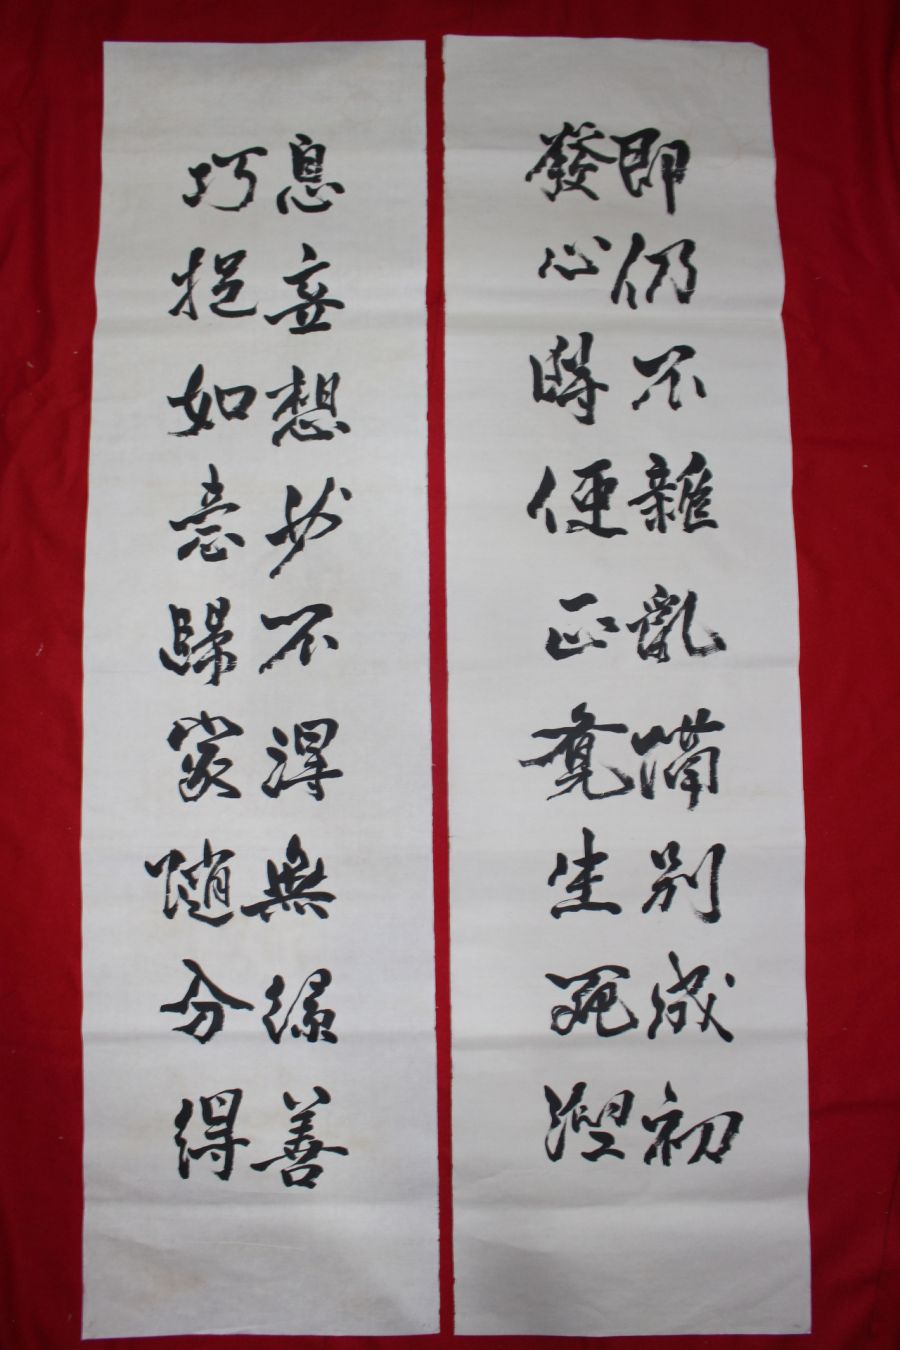 即仍不雜亂隔別成初
發心時便正覺生死涅
息妄想必不得無緣善
巧捉如意歸家隨分得